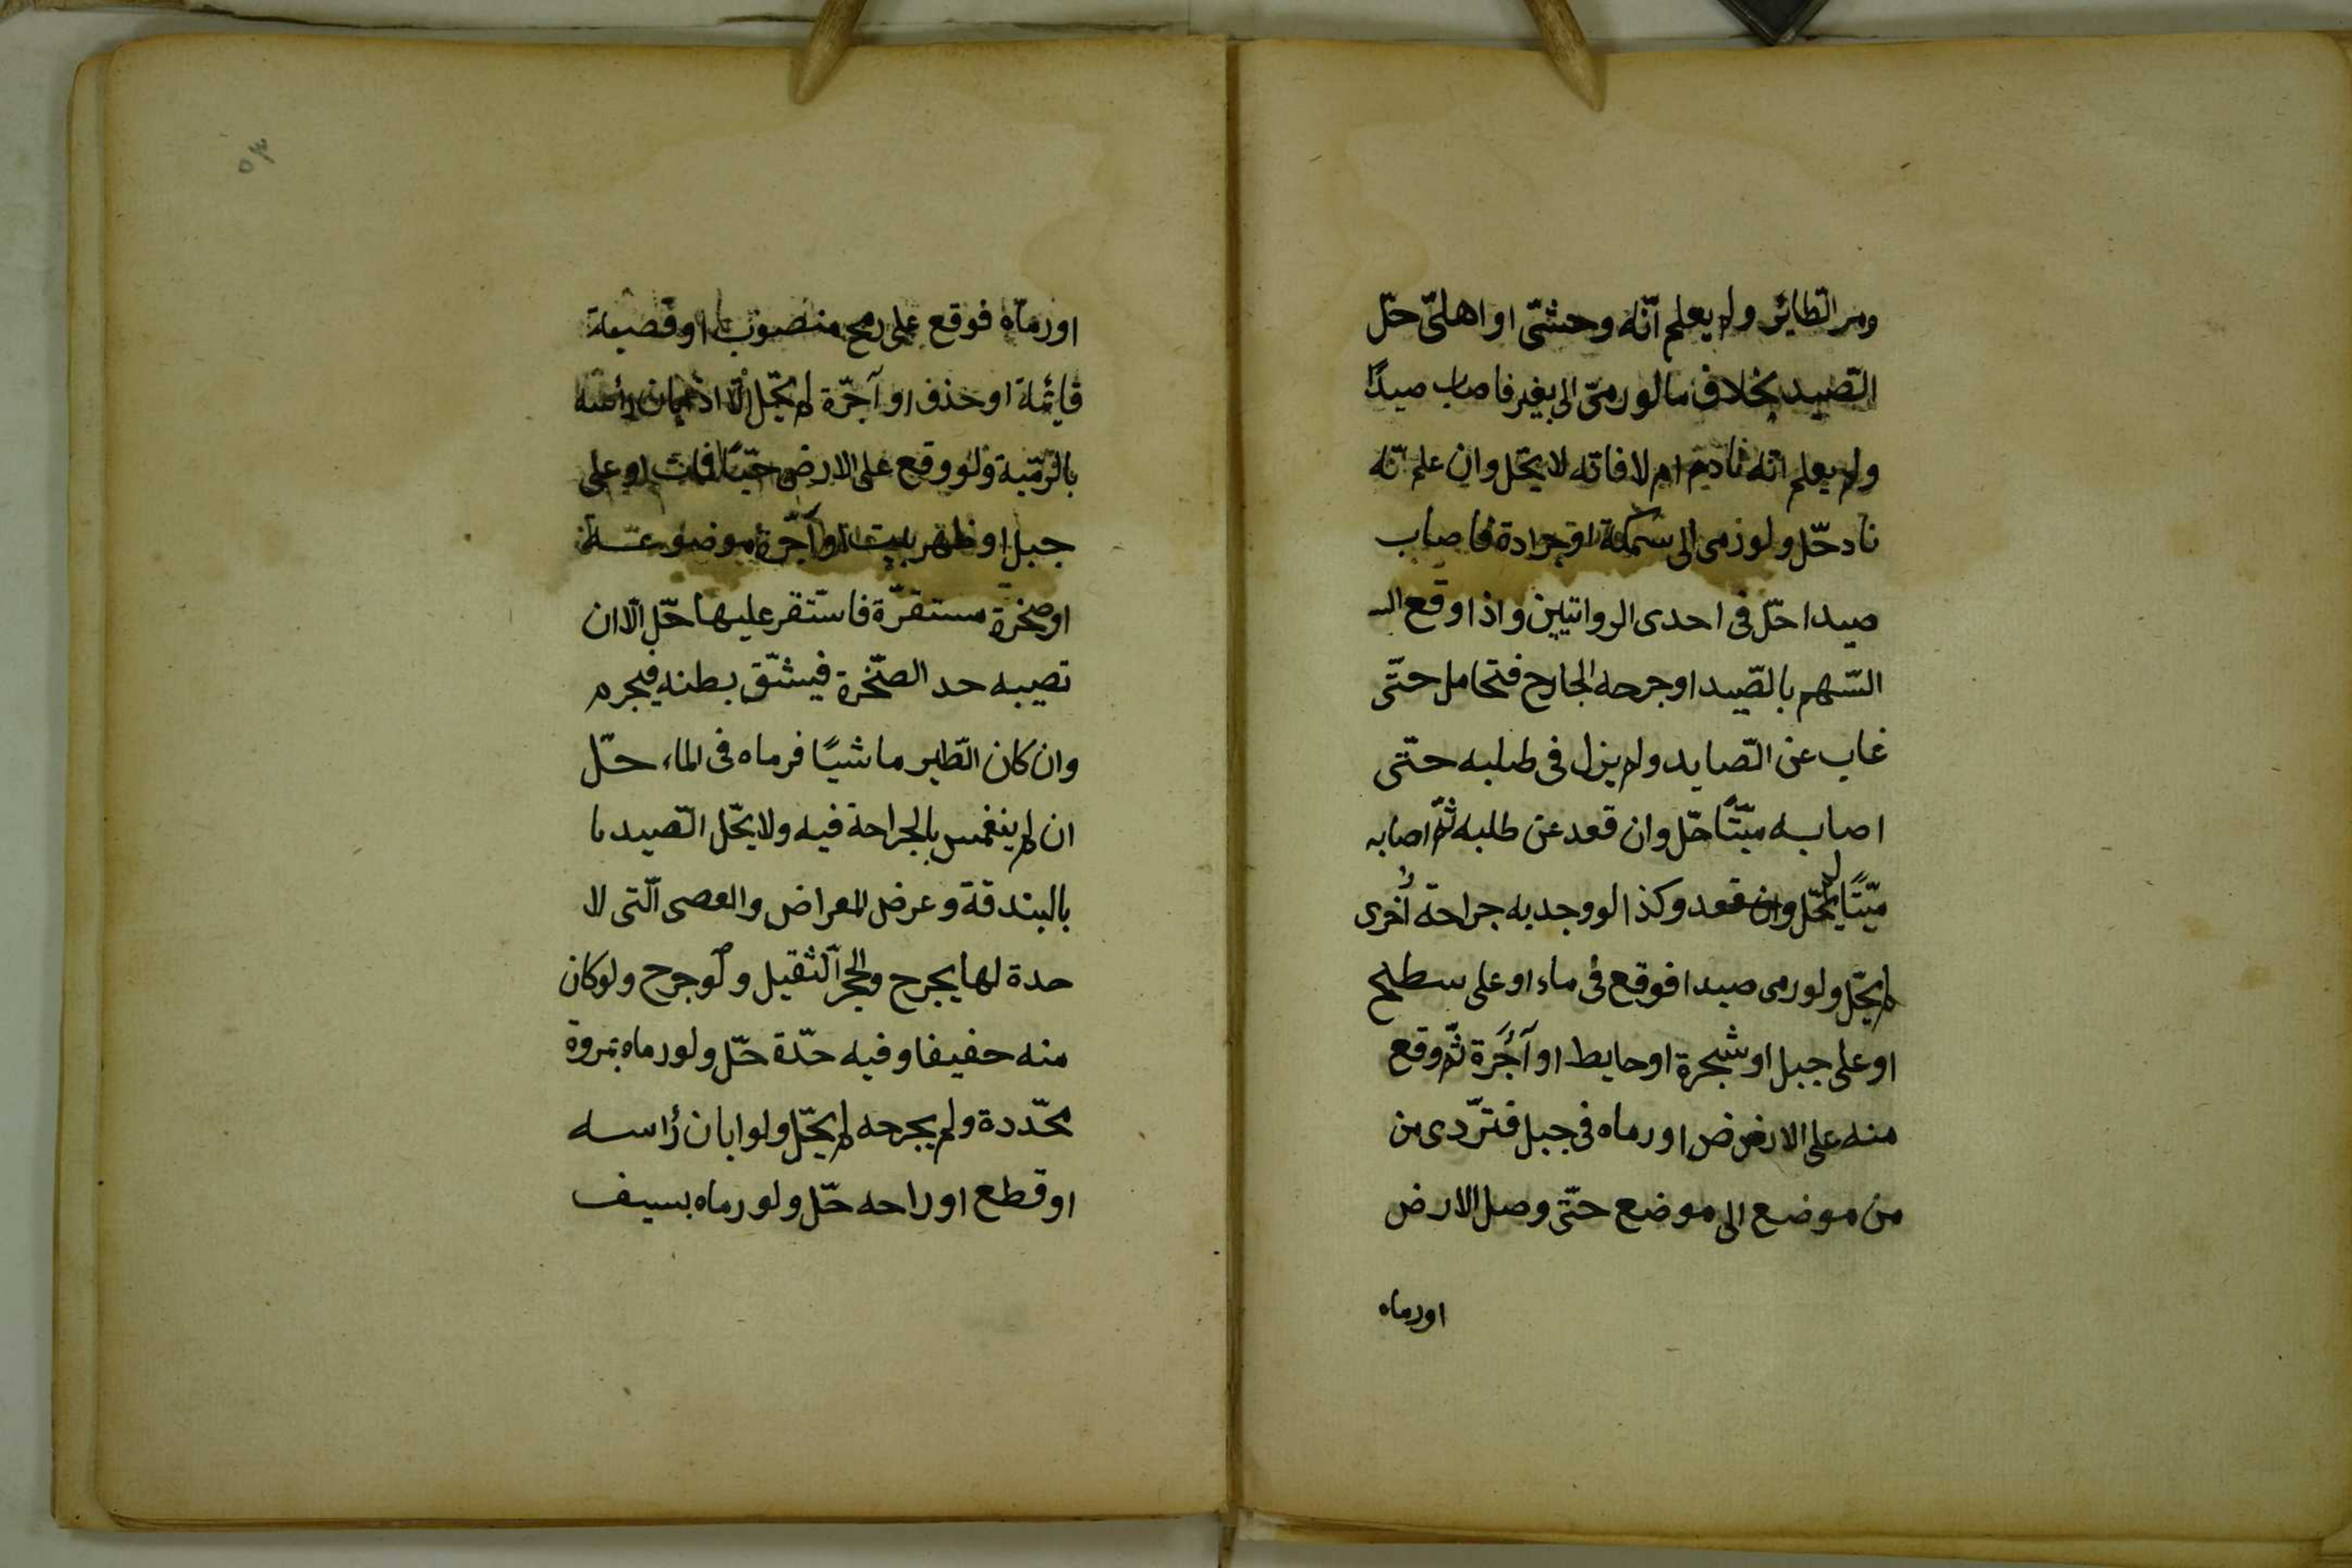 ومر الطائر ولم يعلم انّه وحشىّ او اهلىّ حلّ
الصّيد بخلاف ما لو رمىّ الى بغير فاصاب صيدًا
ولم يعلم انّه نادم ام لا فانه لا يحلّ وان علم انّه
نادحلّ ولو رمى الى سمكة او جرادة فاصاب
صيدا حلّ فى احدى الرواتيين واذا وقع
السّهم بالصّيد او جرحه الجارح فتحامل حتّى
غاب عن الصّايد ولم يزل فى طلبه حتّى
اصابه ميّتًا حلّ وان قعد عن طلبه ثمّ اصابه
ميّتًا لم يحلّ وان قعد وكذا لو وجد به جراحة اُخرى
لم يحلّ ولو رمى صيدا فوقع فى ماء او على سطح
او على جبل او شجرة او حايط او آجُرة ثمّ وقع
منه على الارض او رماه فى جبل فتردّى من
من موضع الى موضع حتّى وصل الارض
او رماه
٥٣
او رماه فوقع على رمح منصوب او قصبة
قائمة او حذف او آجرّة لم يحلّ الّا اذا ابان رأسه
بالرّمية ولو وقع على الارض حيّا فمات او على
جبل او ظهر بيت او آجرّة موضوعة
او صخرة مستقرّة فاستقر عليها حلّ الّا ان
تصيبه حد الصّخرة فيشّق بطنه فيحرم
وان كان الطّير ماشيًا فرماه فى الماء حلّ
ان لم ينغمس بالجراحة فيه ولا يحلّ الصّيد ما
بالبندقة وعرض المعراض والعصى الّتى لا
حدة لها يجرح والحجر الثقيل ولو جرح ولو كان
منه حفيفا وفيه حدّة حلّ ولو رماه بمروة
محدّدة ولم يجرحه لم يحلّ ولو ابان رُاسه
او قطع اوداحه حلّ ولو رماه بسيف